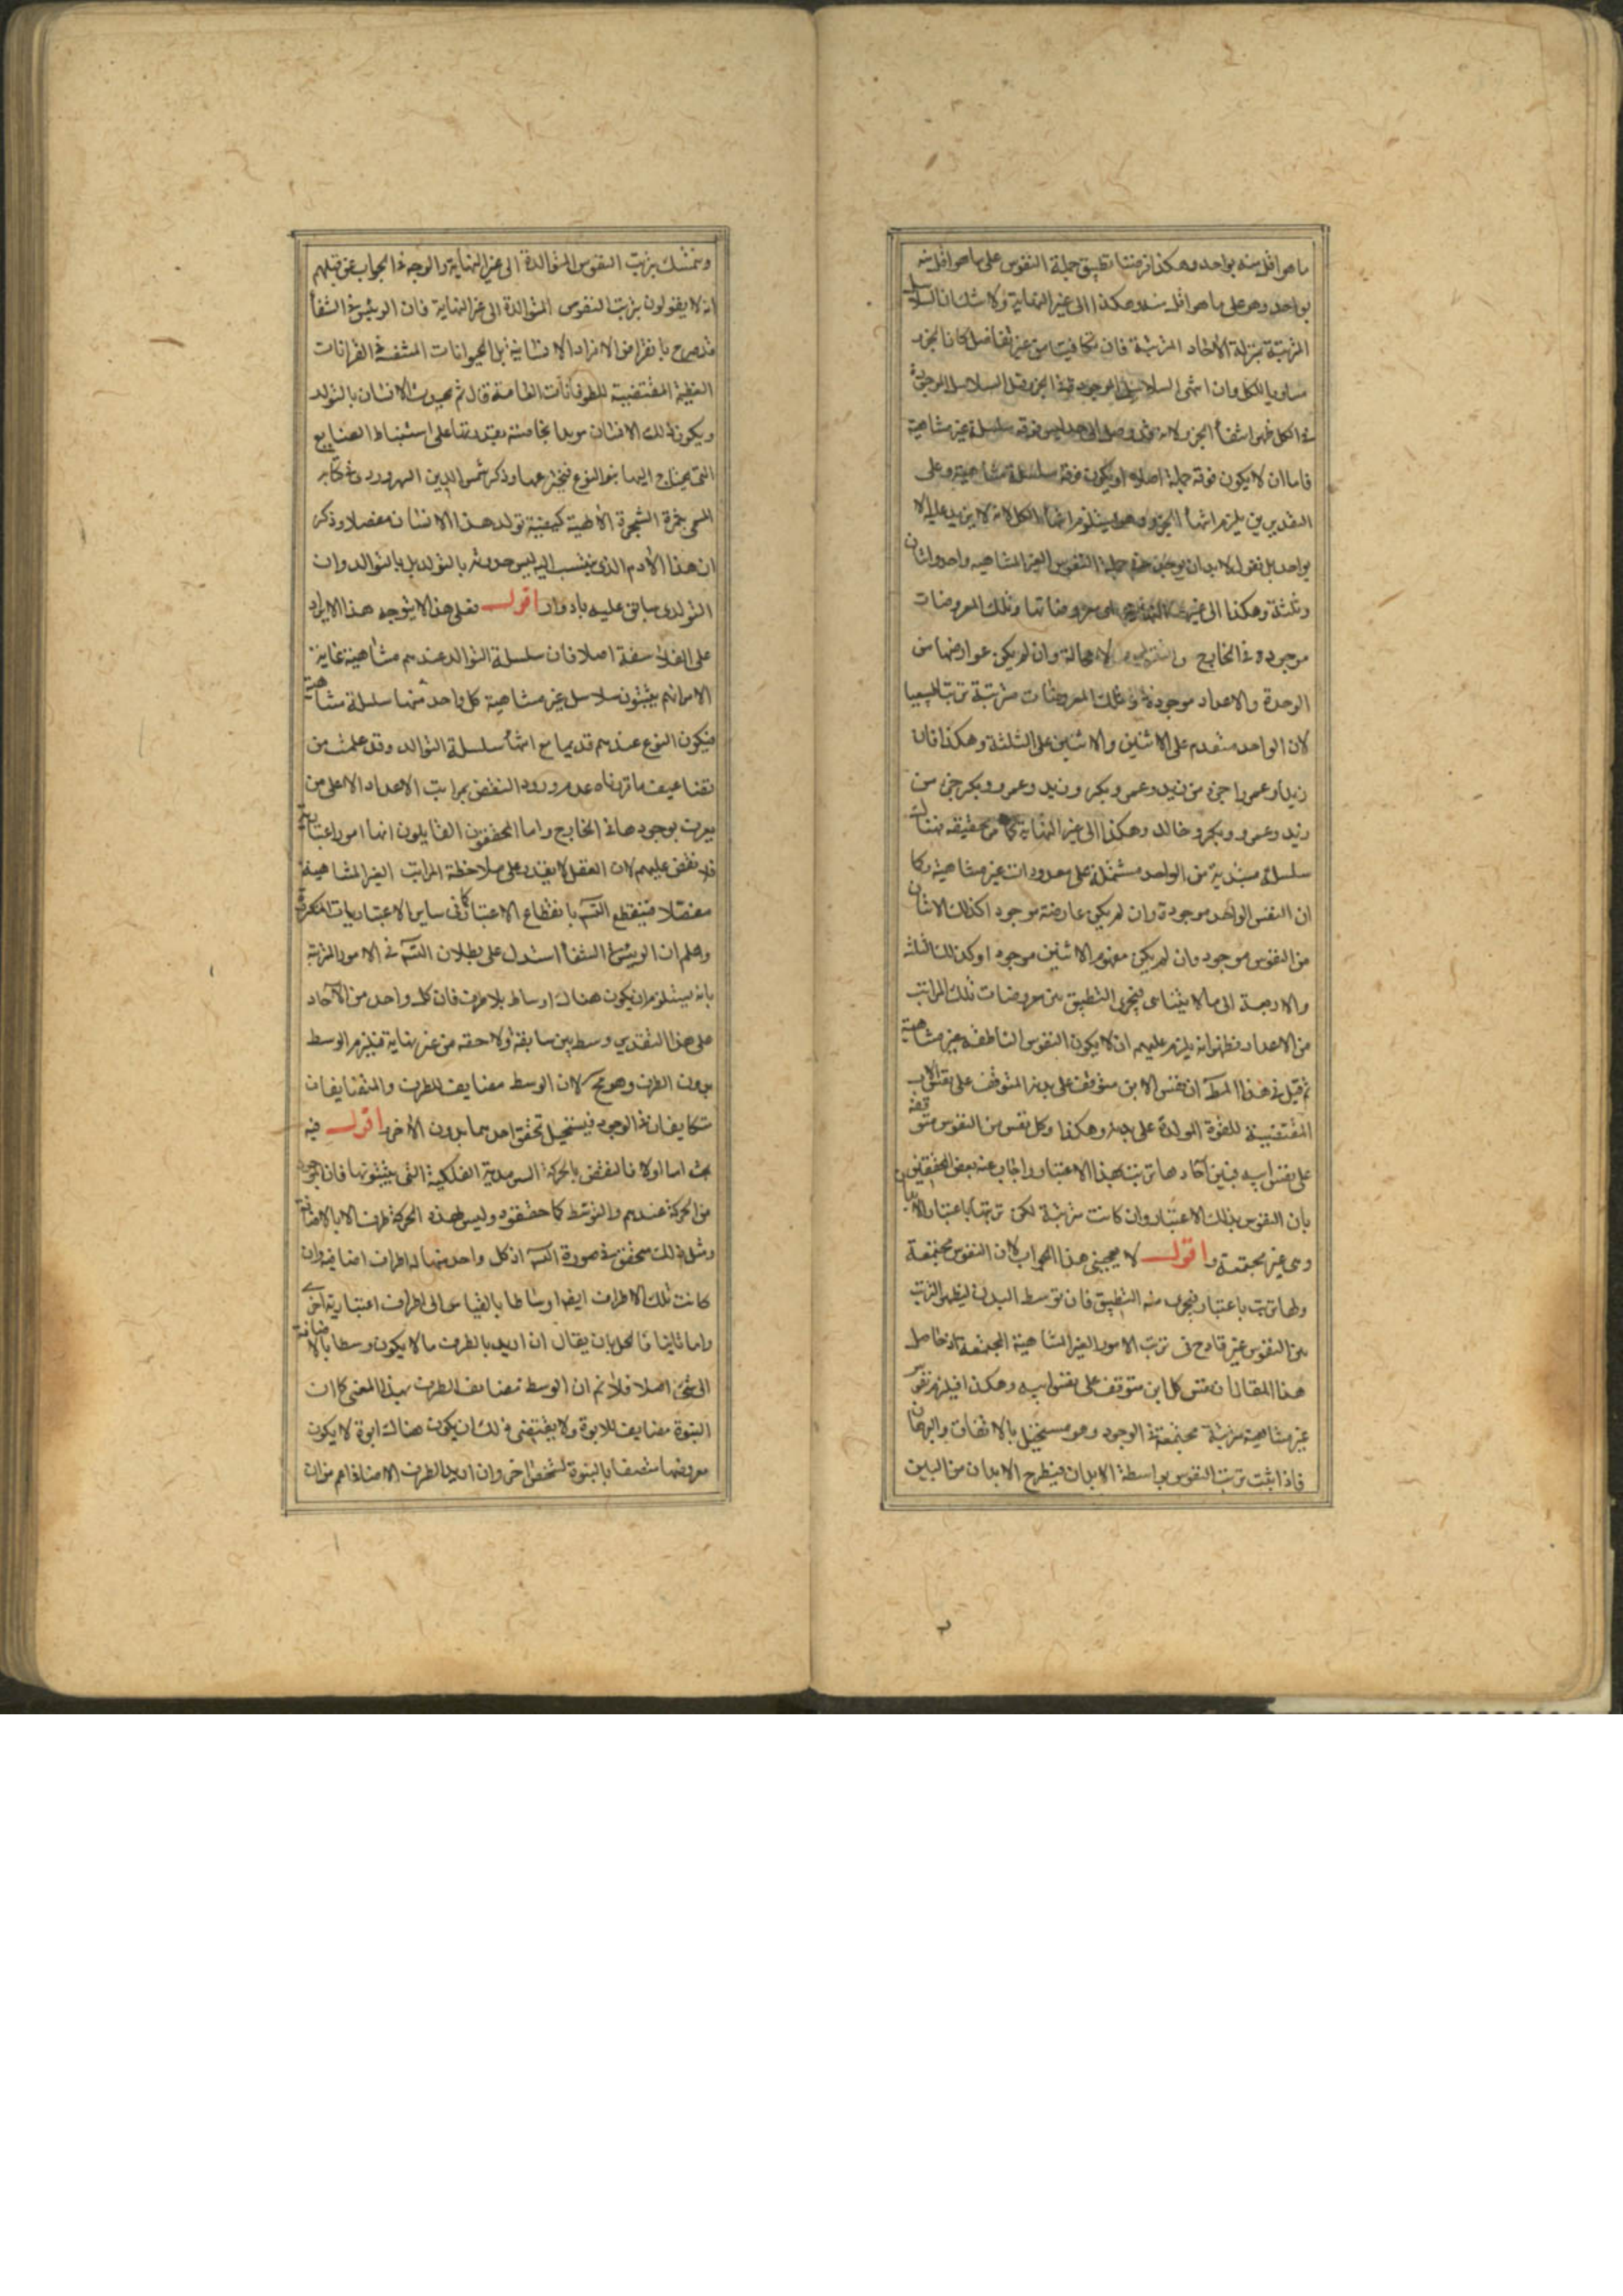 ما هو اقل منه بواحد وهكذا فرضنا تطبيق جملة النفوس على ما هو اقل منه
بواحد وهو على ما هو اقل منه وهكذا الى غير النهاية ولا شك ان السلاسل
المرتبة بمنزلة الآحاد المرتبة فان تكافيتا من غير تفاضل كان الجزء
مساويا للكل وان انتهى السلاسل الموجودة في الجزء قبل السلاسل الموجودة
في الكل ظهر انتهاء الجزء لانه قد وصل الى حد ليس فوقه سلسلة غير متناهية
فاما ان لا يكون فوقه جملة اصلا او يكون فوقه سلسلة متناهية وعلى
التقديرين يلزم انتهاء الجزء وهو يستلزم انتهاء الكل لانه لا يزيد عليه الا
بواحد بل نقول لا بد ان يوجد في جملة النفوس الغير المتناهية واحد واثنان
وثلثة وهكذا الى غير النهاية معروضاتها وتلك المعروضات
موجودة في الخارج لا محالة وان لم يكن عوارضها من
الوحدة والاعداد موجودة وتلك المعروضات مترتبة ترتبا طبيعيا
لان الواحد متقدم على الاثنين والاثنين على الثلثة وهكذا فان
زيدا وعمروا جزء من زيد وعمرو وبكر وزيد وعمرو وبكر جزء من
زيد وعمرو وبكر وخالد وهكذا الى غير النهاية كما مر تحقيقه فهناك
سلسلة مبتدية من الواحد مشتملة على معدودات غير متناهية وكما
ان النفس الواحد موجودة وان لم يكن عارضة موجودا كذلك الاثنان
من النفوس موجود وان لم يكن مفهوم الاثنين موجودا وكذلك الثلثة
والاربعة الى ما لا يتناهى فيجري التطبيق بين معروضات تلك المراتب
من الاعداد فظهر انه يلزم عليهم ان لا يكون النفوس الناطقة غير متناهية
ثم قيل في هذا المط ان نفس الابن متوقف على بدنه المتوقف على نفس الاب
المقتضية للقوة المولدة على بدنه وهكذا وكل نفس من النفوس متوقفة
على نفس ابيه فبين آحادها ترتب بهذا الاعتبار واجاب عنه بعض المحققين
بان النفوس بذلك الاعتبار وان كانت مترتبة لكن ترتبها باعتبار الابدان
وهى غير مجتمعة واقول لا يعجبنى هذا الجواب لان النفوس مجتمعة
ولها ترتب باعتبار فيجري فيه التطبيق فان توسط البدن ليظهر الترتب
بين النفوس غير قادح فى ترتب الامور الغير المتناهية المجتمعة اذ حاصل
هذا المقال ان نفس كل ابن متوقف على نفس ابيه وهكذا فيلزم نفوس
غير متناهية مترتبة مجتمعة في الوجود وهو مستحيل بالاتفاق والبرهان
فاذا ثبت ترتب النفوس بواسطة الابدان فيطرح الابدان من البين
ويتمسك بترتب النفوس المتوالدة الى غير النهاية والوجه في الجواب عن قبلهم
انه لا يقولون بترتب النفوس المتوالدة الى غير النهاية فان الرئيس في الشفأ
قد صرح بانقراض الافراد الانسانية بل الحيوانات المتنفسة في القرانات
العظيمة المقتضية للطوفانات العامة قال ثم يحدث الانسان بالتولد
ويكون ذلك الانسان مويدا بخاصة يقتدر بها على استنباط الصنايع
التى يحتاج اليها بنو النوع فيخترعها وذكر شمس الدين السهروردى في كتابه
المسمى بثمرة الشجرة الالهية كيفية تولد هذا الانسان مفصلا وذكر
ان هذا الآدم الذى ينتسب اليه ليس حدوثه بالتولد بل بالتوالد وان
التولدى سابق عليه بادوار اقول فعلى هذا لا يتوجه هذا الايراد
على الفلاسفة اصلا فان سلسلة التوالد عندهم متناهية غاية
الامر انهم يثبتون سلاسل غير متناهية كل واحد منها سلسلة متناهية
فيكون النوع عندهم قديما مع انتهاء سلسلة التوالد وقد علمت من
تضاعيف ما قررناه عدم ورود النقض بمراتب الاعداد الا على من
يعرف بوجودها في الخارج واما المحققون القايلون انها امور اعتبارية
فلا نقض عليهم لان العقل لا يقدر على ملاحظة المراتب الغير المتناهية
مفصلا فينقطع التسه بانقطاع الاعتبار كما فى ساير الاعتباريات المتكررة
واعلم ان الرئيس في الشفأ استدل على بطلان التسه فى الامور المترتبة
بانه يستلزم ان يكون هناك اوساط بلا طرف فان كل واحد من الآحاد
على هذا التقدير وسط بين سابقه ولاحقه من غير نهاية فيلزم الوسط
بدون الطرف وهو مح لان الوسط مضايف للطرف والمتضايفان
متكافيان في الوجود فيستحيل تحقق احدهما بدون الآخر اقول فيه
بحث اما اولا فالنقض بالحركة السرمدية الفلكية التى يثبتونها فان الموجود
من الحركة عندهم والتوسط كما حققوه وليس لهذه الحركة طرف الا بالاضافة
ومثل ذلك متحقق في صورة التسه اذ كل واحد منها له اطراف اضافية وان
كانت تلك الاطراف ايضا اوساطا بالقياس الى اطراف اعتبارية اخرى
واما ثانيا فالحل بان يقال ان اريد بالطرف ما لا يكون وسطا بالاضافة
الى شىء اصلا فلا نم ان الوسط مضايف للطرف بهذا المعنى كما ان
البنوة مضايف للابوة ولا يقتضى ذلك ان يكون هناك ابوة لا يكون
معروضها متصفا بالبنوة لشخص اخر وان اريد بالطرف الاضافة اعم من ان